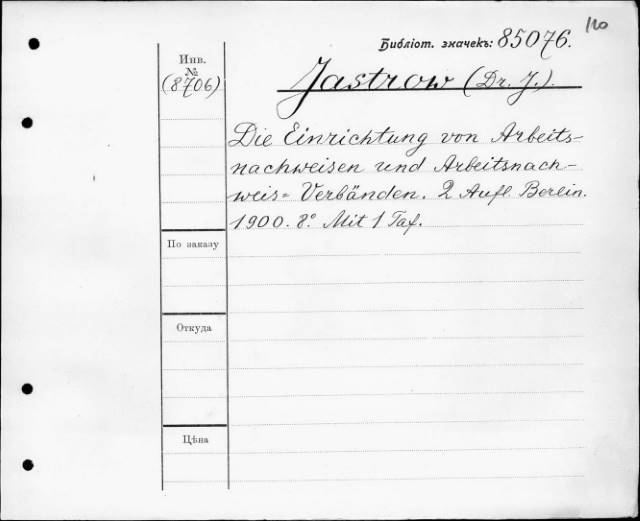 120
Библіот. значекъ: 85076.
Инв.
№
(8706)
Jastrow (Dr. J.).
Die Einrichtung von Arbeits-
nachweisen und Arbeitsnach-
weis= Verbänden. 2 Aufl. Berlin.
1900. 8º. Mit 1 Taf.
По заказу
Откуда
Цѣна